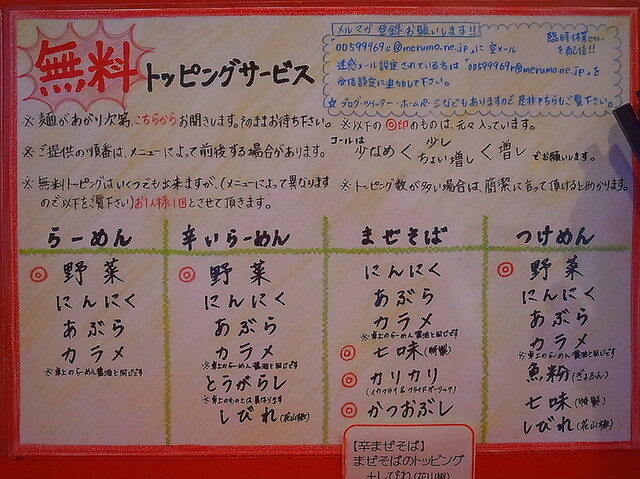 無料トッピングサービス
メルマガ登録お願いします!!
"00599969s@merumo.ne.jp"に空メール
迷惑メール設定されている方は"00599969r@merumo.ne.jp"を
受信設定に追加して下さい。
臨時休業etc..
を配信!!
☆ブログ・ツイッター・ホームページなどもありますので是非そちらもご覧下さい。
※麺があがり次第、こちらからお聞きします。そのままお待ち下さい。
※ご提供の順番は、メニューによって前後する場合があります。
※無料トッピングはいくつでも出来ますが、(メニューによって異なります
ので以下をご覧下さい)お1人様1回とさせて頂きます。
※以下の◎印のものは、元々入っています。
コールは
少なめ<少し
ちょい増し<増し
でお願いします。
※トッピング数が多い場合は、簡潔に言って頂けると助かります。
らーめん
◎野菜
にんにく
あぶら
カラメ
※卓上のらーめん醤油と同じです
辛いらーめん
◎野菜
にんにく
あぶら
カラメ
※卓上のらーめん醤油と同じです
とうがらし
※卓上のものとは異なります
しびれ(花山椒)
まぜそば
にんにく
あぶら
カラメ
※卓上のらーめん醤油と同じです
◎七味(特製)
◎カリカリ
(イカフライ&フライドガーリック)
◎かつおぶし
つけめん
◎野菜
にんにく
あぶら
カラメ
※卓上のらーめん醤油と同じです
魚粉(ぎょふん)
七味(特製)
しびれ(花山椒)
【辛まぜそば】
まぜそばのトッピング
+しびれ(花山椒)